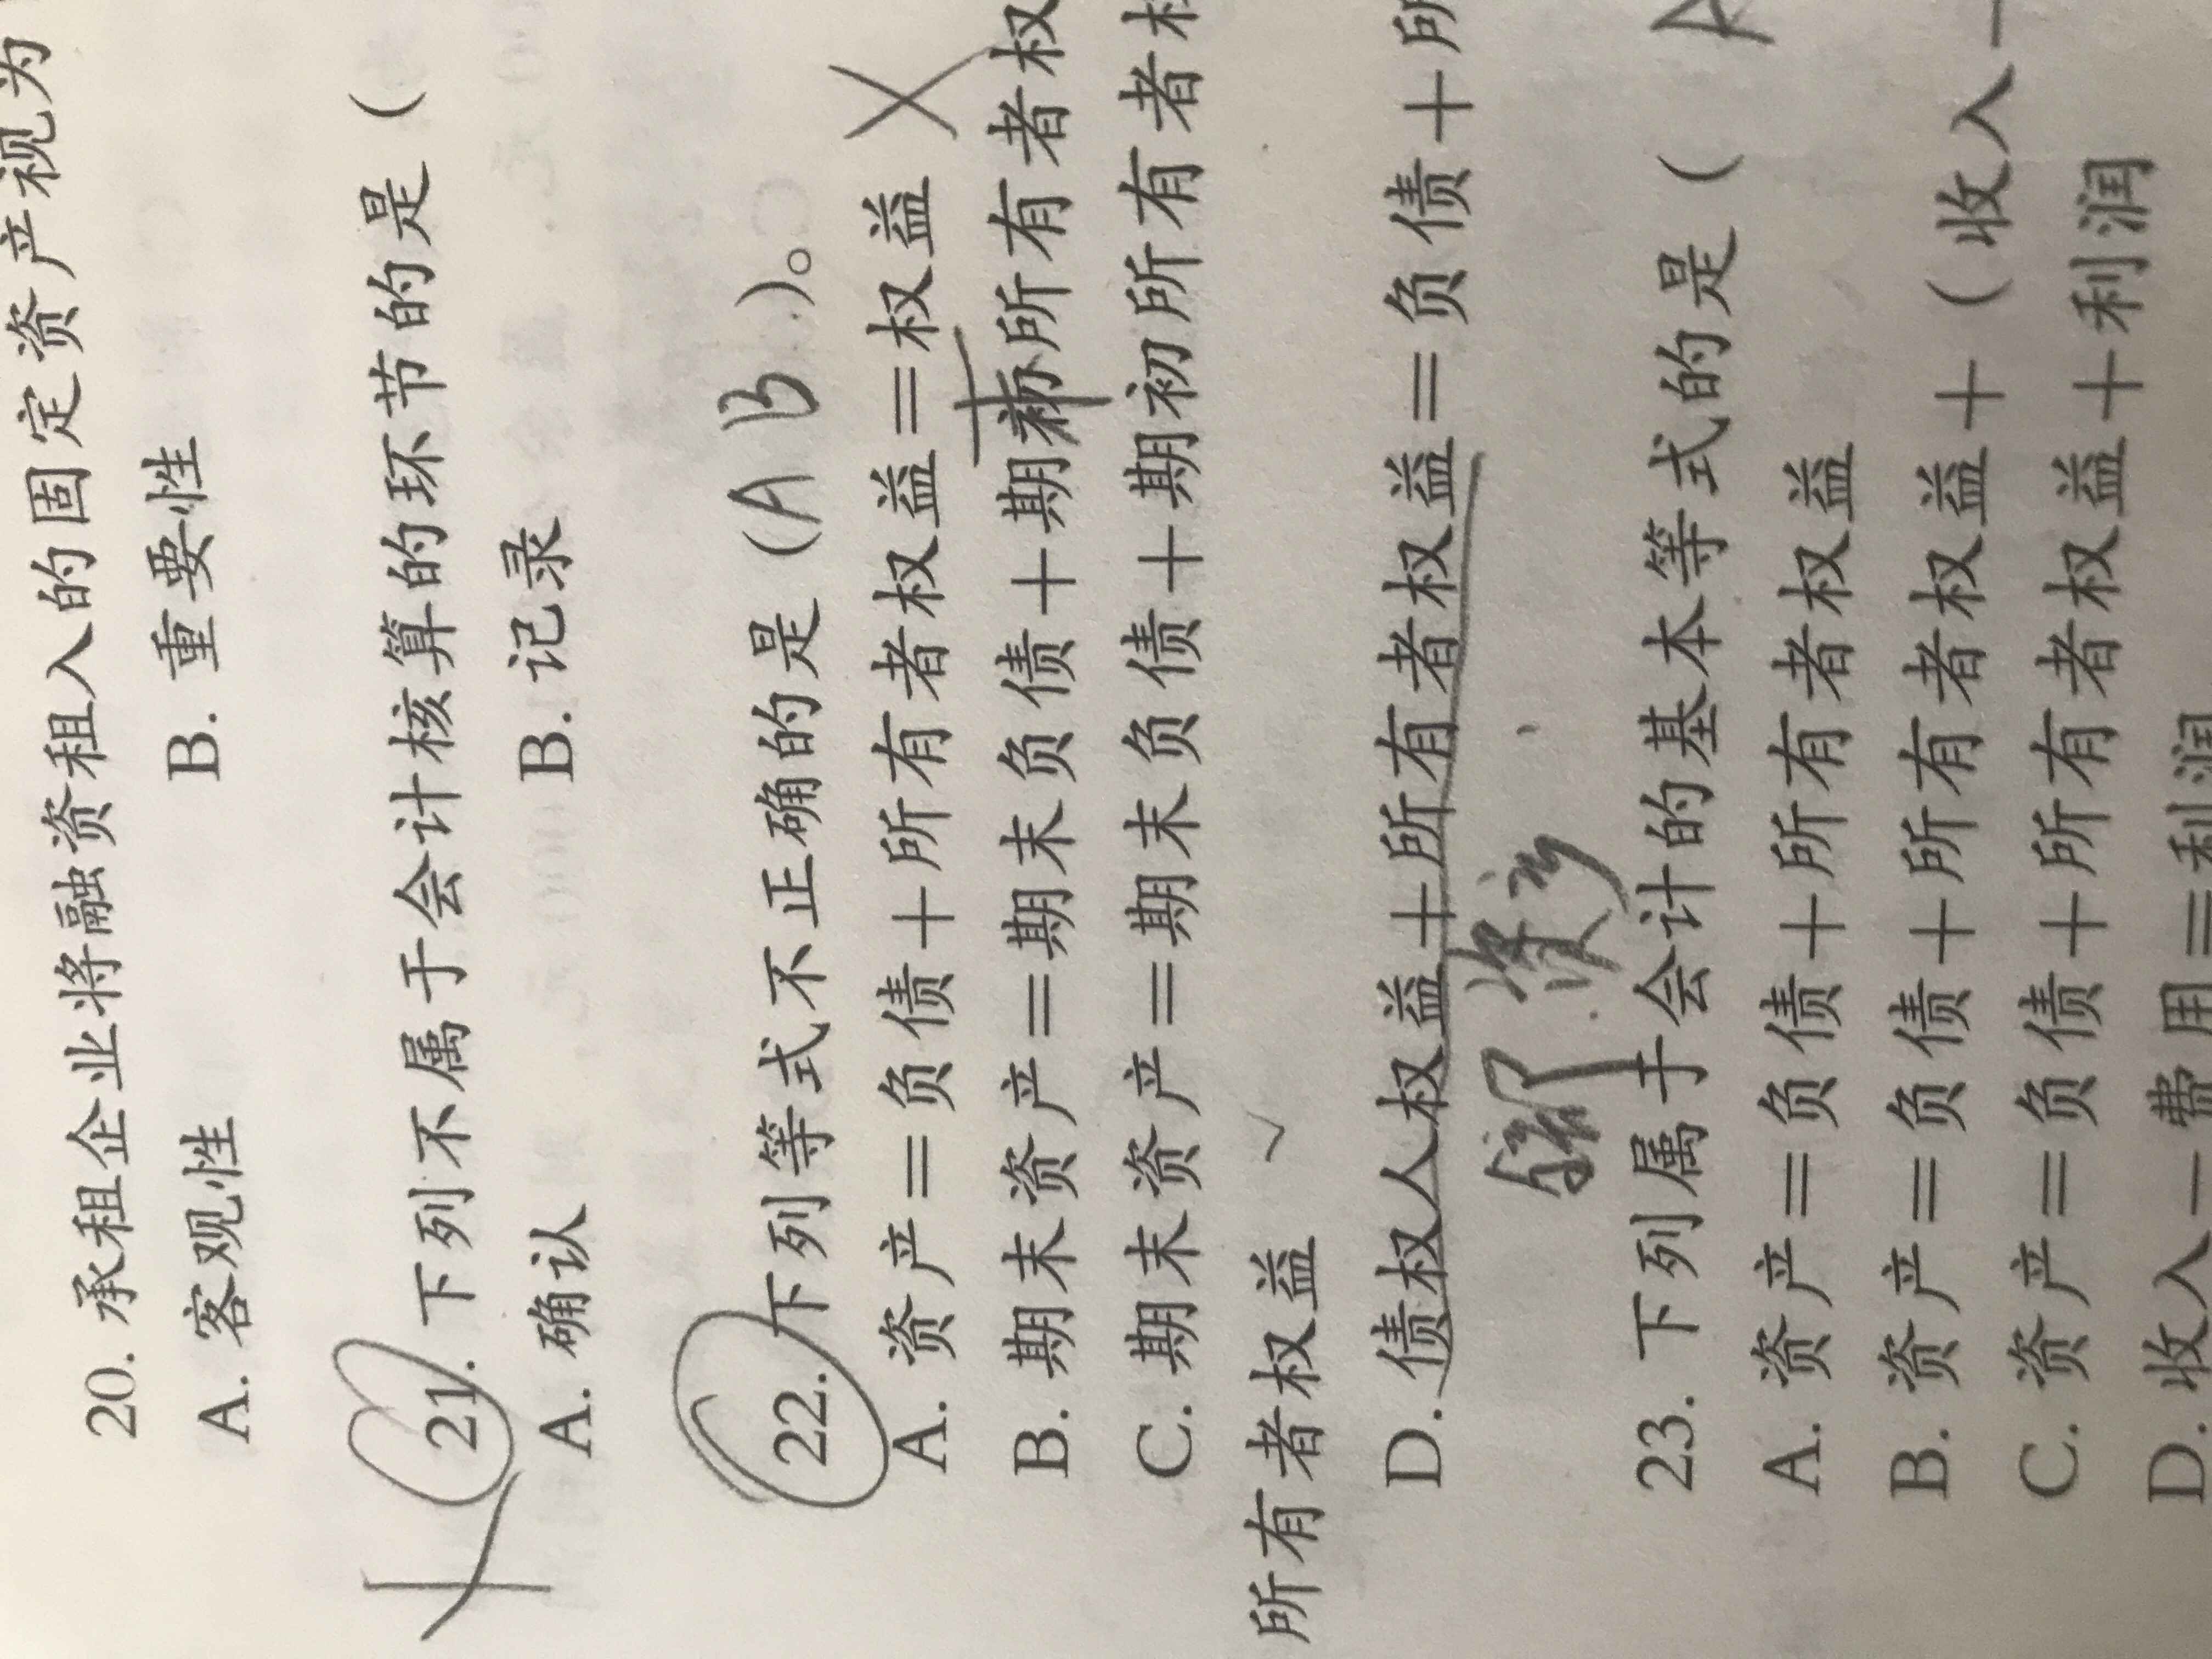 20. 承租企业将融资租入的固定资产视为
A. 客观性 B. 重要性
21. 下列不属于会计核算的环节的是（
A. 确认 B. 记录
22. 下列等式不正确的是（A B）。
A. 资产＝负债＋所有者权益＝权益
B. 期末资产＝期末负债＋期初所有者权
C. 期末资产＝期末负债＋期初所有者权
所有者权益
D. 债权人权益＋所有者权益＝负债＋所
23. 下列属于会计的基本等式的是（ A
A. 资产＝负债＋所有者权益
B. 资产＝负债＋所有者权益＋（收入－
C. 资产＝负债＋所有者权益＋利润
D. 收入－费用＝利润